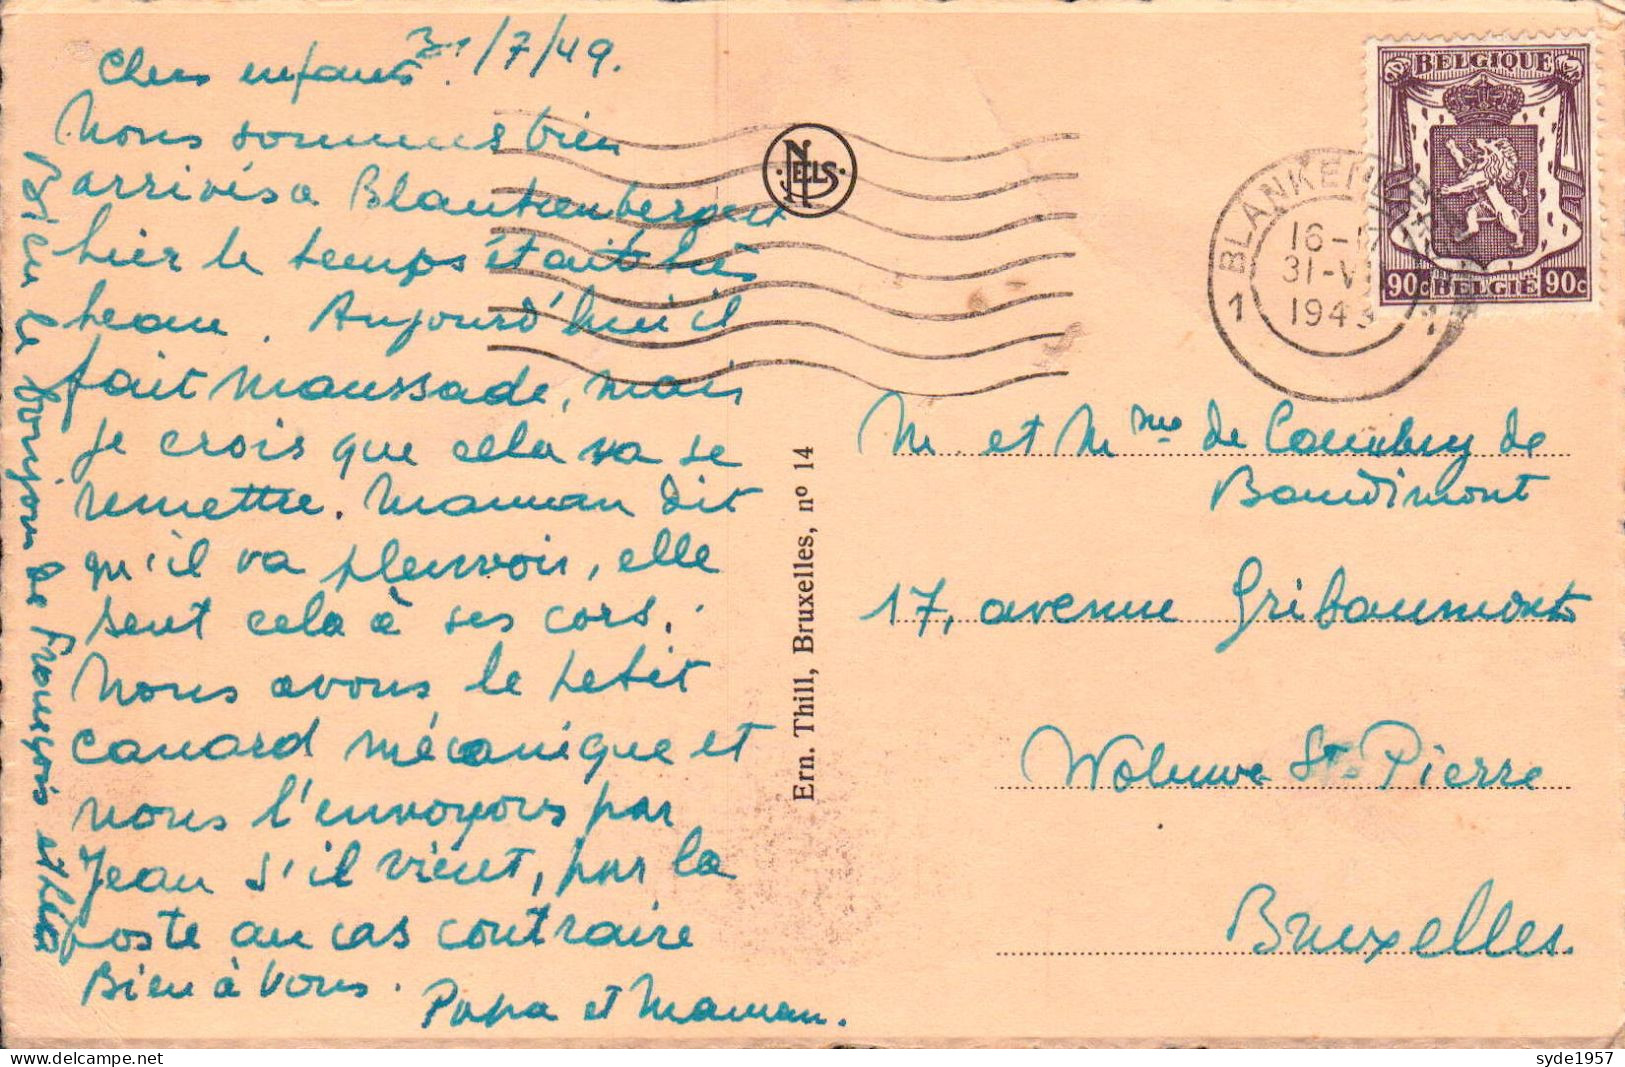 31/7/49.
Chers enfants.
Nous sommes bien
arrivés a Blankenberge et
hier le temps était très
beau. Aujourd'hui il
fait maussade, mais
je crois que cela va se
remettre. Maman dit
qu'il va pleuvoir, elle
sent cela à ses cors.
Nous avons le petit
canard mécanique et
nous l'envoyons par
Jean s'il vient, par la
poste au cas contraire
Bien à vous.
Papa et Maman.
Bien le bonjour de François et
NELS
Ern. Thill, Bruxelles, nº 14
BELGIQUE
90c BELGIË 90c
BLANKENBERGE
16-17
31-VII
1949
1
M. et Mme de Cambry de
Baudimont
17, avenue Gribaumont
Woluwe St. Pierre
Bruxelles.
syde1957